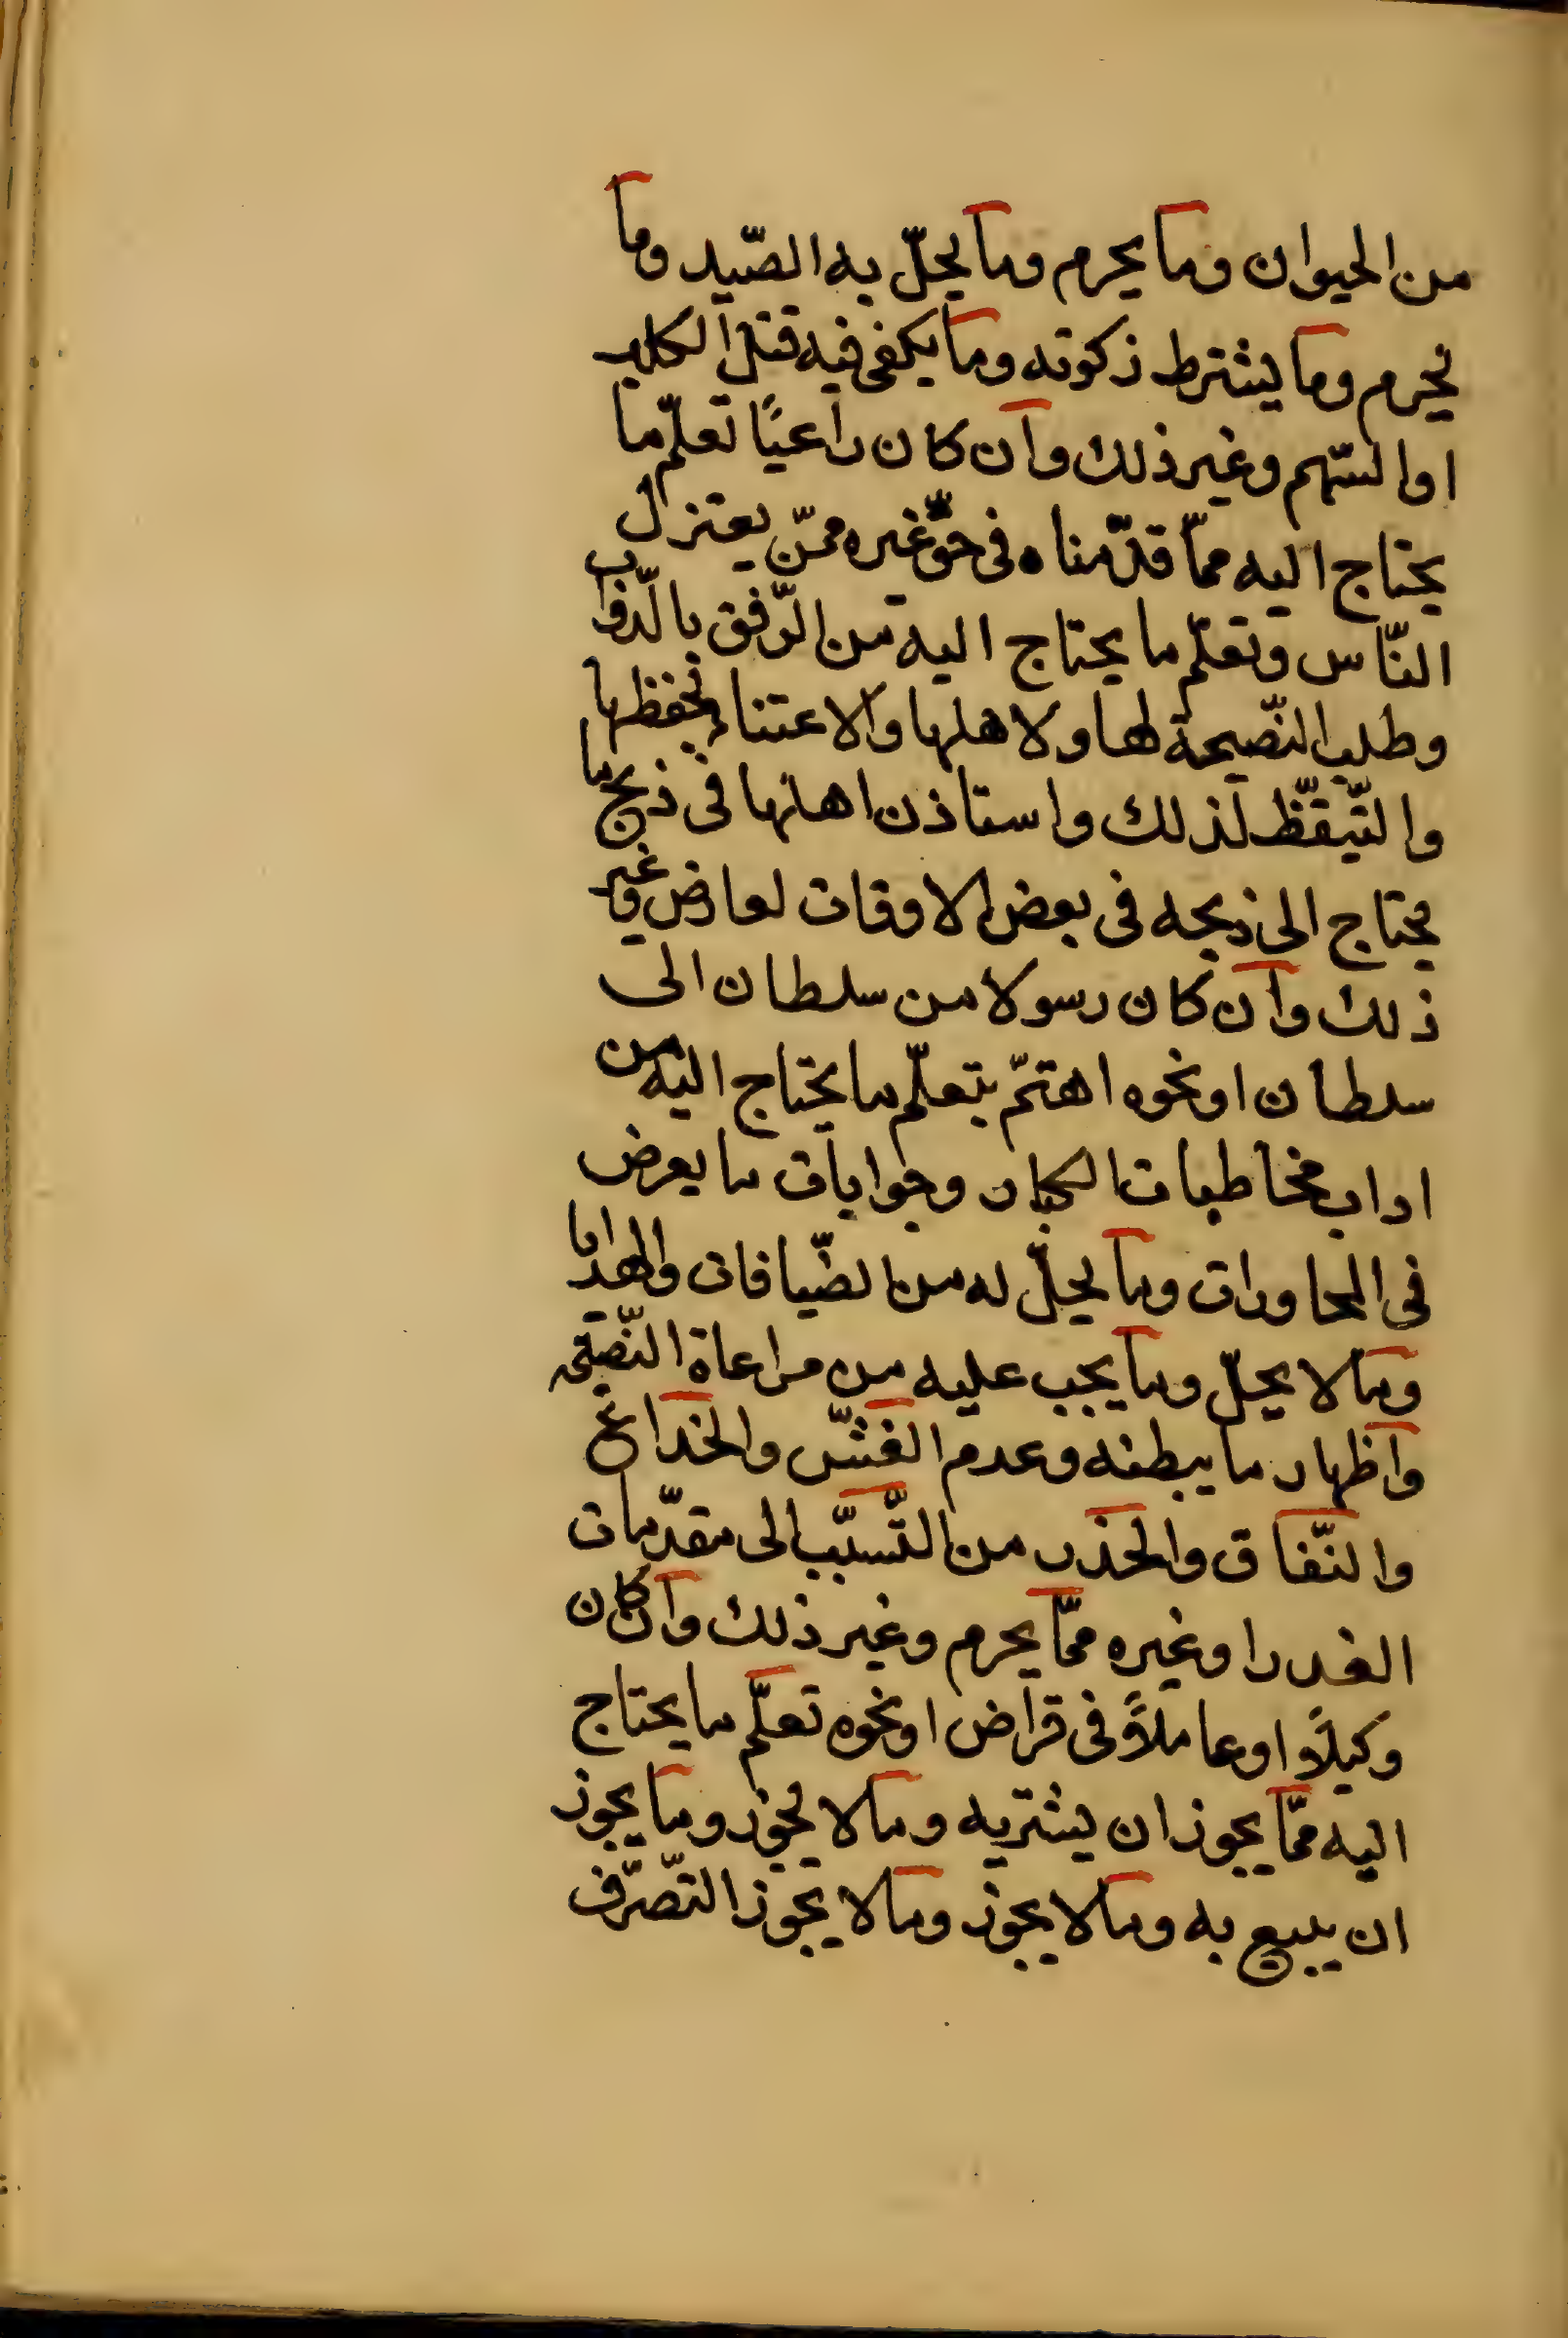 من الحيوان وما يحرم وما يحلّ به الصّيد وما
يحرم وما يشترط ذكوته وما يكفى فيه قتل الكلب
او السّهم وغير ذلك وان كان راعيًا تعلّم ما
يحتاج اليه ممّا قدّمناه فى حقّ غيره ممّن يعتزل
النّاس وتعلّم ما يحتاج اليه من الرّفق بالدّواب
وطلب النّصيحة لها ولاهلها والاعتناء بحفظها
والتّيقّظ لذلك واستاذن اهلها فى ذبح ما
يحتاج الى ذبحه فى بعض الاوقات لعارض وغير
ذلك وان كان رسولا من سلطان الى
سلطان او نحوه اهتمّ بتعلّم ما يحتاج اليه من
اداب مخاطبات الكبار وجوابات ما يعرض
فى المحاورات وما يحلّ له من الضّيافات والهدايا
وما لا يحلّ وما يجب عليه من مراعاة النّصيحه
واظهار ما يبطنه وعدم الغشّ والخداع
والنّفاق والحذر من التّسبّب الى مقدّمات
الغدر او غيره ممّا يحرم وغير ذلك وان كان
وكيلاً او عاملاً فى قراض او نحوه تعلّم ما يحتاج
اليه ممّا يجوز ان يشتريه وما لا يجوز وما يجوز
ان يبيع به وما لا يجوز وما لا يجوز التّصرّف